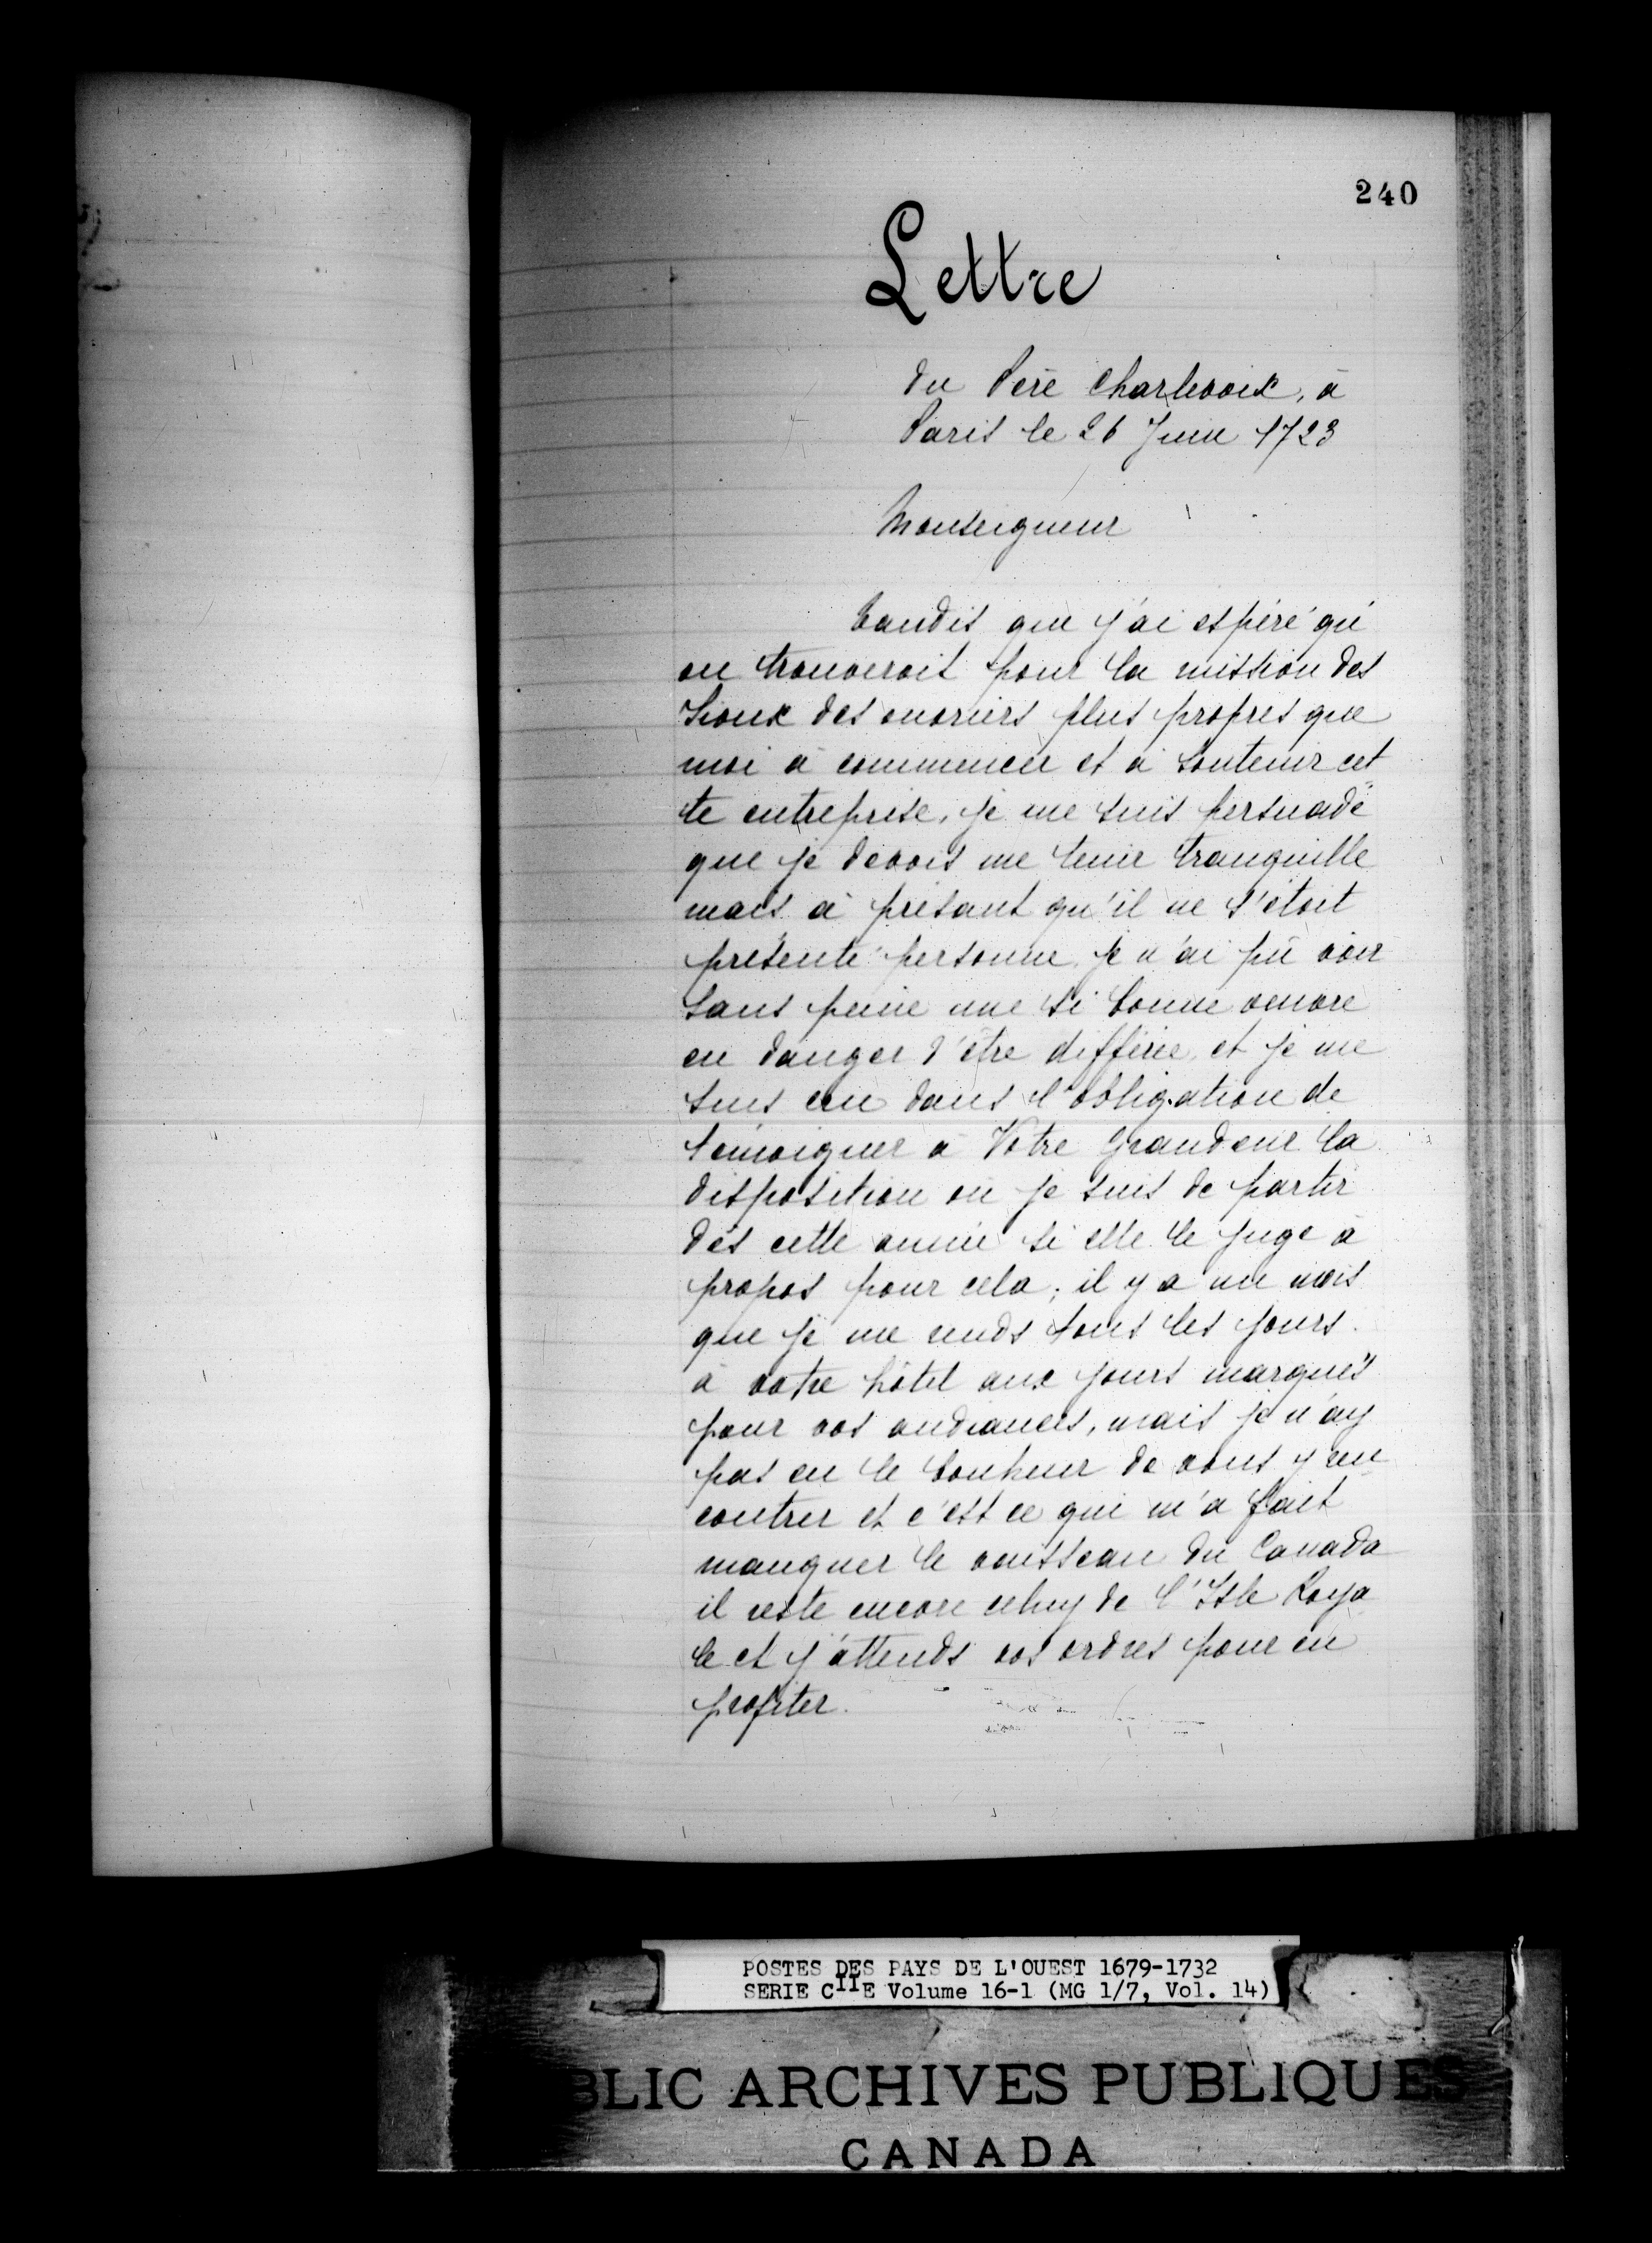 240
Lettre
du Père Charlevoix, à
Paris le 26 Juin 1723
Monseigneur
Tandis que j'ai espéré qu'
on trouveroit pour la mission des
Sioux des ouvriers plus propres que
moi à commencer et à soutenir cet
te entreprise, je me suis persuadé
que je devois me tenir tranquille
mais à présant qu'il ne s'étoit
présenté personne je n'ai pû voir
sans peine une si bonne oeuvre
en danger d'être différée, et je me
suis cru dans l'obligation de
témoigner à Votre Grandeur la
disposition où je suis de partir
dès cette année si elle le juge à
propos pour cela; il y a un mois
que je me rends tous les jours
à votre hôtel aux jours marqués
pour vos audiances, mais je n'ay
pas eu le bonheur de vous y ren
contrer et c'est ce qui m'a fait
manquer le vaisseau du Canada
il reste encore celuy de l'Isle Roya
le et j'attends vos ordres pour en
profiter.
POSTES DES PAYS DE L'OUEST 1679-1732
SERIE CIIE Volume 16-1 (MG 1/7, Vol. 14)
BLIC ARCHIVES PUBLIQUES
CANADA